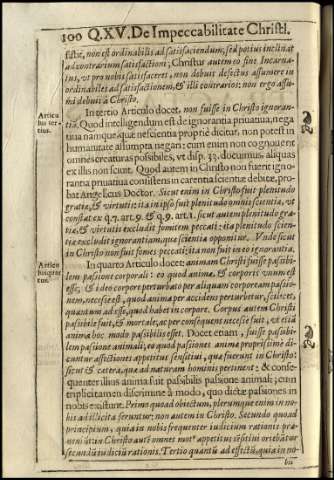 100 Q.XV. De Impeccabilitate Christi.
sistit, non est ordinabilis ad satisfaciendum; sed potius inclinat
ad contrarium satisfactioni; Christus autem eo fine Incarna-
tus, vt pro nobis satisfaceret, non debuit defectus assumere in
ordinabiles ad satisfactionem, & illi contrarios: non ergo assu-
mi debuit à Christo.
Articu
lus ter-
tius.
In tertio Articulo docet, non fuisse in Christo ignoran-
tia. Quod intelligendum est de ignorantia priuatiua, nega
tiua namque, quæ nescientia propriè dicitur, non potest in
humanitate assumpta negari: cum enim non cognouerit
omnes creaturas possibiles, vt disp. 43. docuimus, aliquas
ex illis non sciuit. Quod autem in Christo non fuerit igno-
rantia priuatiua consistens in carentia scientiæ debitæ, pro-
bat Angelicus Doctor. Sicut enim in Christo fuit plenitudo
gratiæ, & virtutis: ita in ipso fuit plenitudo omnis scientiæ, vt
constat ex q.7. art.9. & q.9. art.1. sicut autem plenitudo gra-
tiæ, & virtutis excludit fomitem peccati: ita plenitudo scien-
tiæ excludit ignorantiam, quæ scientiæ opponitur. Vnde sicut
in Christo non fuit fomes peccati: ita non fuit in eo ignorantia.
Articu
lus quar
tus.
In quarto Articulo docet: animam Christi fuisse passibi-
lem passione corporali: eo quod anima, & corporis vnum est
esse, & ideo corpore perturbato per aliquam corpoream passio-
nem, necesse est, quod anima per accidens perturbetur, scilicet,
quantum ad esse, quod habet in corpore. Corpus autem Christi
passibile fuit, & mortale, ac per consequens necesse fuit, vt eius
anima hoc modo passibilis esset. Docet etiam, fuisse passibi-
lem passione animali; eo quod passiones animæ propriissimè di-
cuntur affectiones appetitus sensitiui, quæ fuerunt in Christo:
sicut & cætera, quæ ad naturam hominis pertinent; & conse-
quenter illius anima fuit passibilis passione animali; cum
triplici tamen discrimine à modo, quo dictæ passiones in
nobis existunt. Primo quoad obiectum, plerumque enim in no-
bis ad illicita feruntur: non autem in Christo. Secundo quoad
principium, quia in nobis frequenter iudicium rationis præ-
ueniunt: in Christo autem omnes motus appetitus sensitiui oriebatur
secundum iudicium rationis. Tertio quantum ad effectum, quia in no-
bis